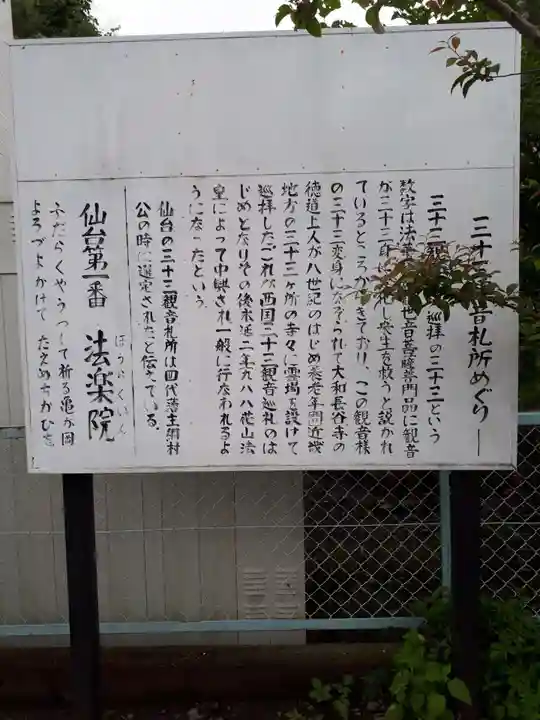 三十三 音札所めぐり―
三十三観 巡拝の三十三という
数字は法華 世音菩薩普門品に観音
が三十三身に 化し衆生を救うと説かれ
ているところからきており この観音様
の三十三変身になぞらえて大和長谷寺の
徳道上人が八世紀のはじめ養老年間近畿
地方の三十三ヶ所の寺々に霊場を設けて
巡拝したこれが西国三十三観音巡礼のは
じめとなりその後永延二年九八八花山法
皇によって中興され一般に行なわれるよ
うになったという。
仙台の三十三観音札所は四代藩主綱村
公の時に選定されたと伝えている。
仙台第一番 法楽院
ほうらくいん
ふだらくやうつして祈る亀が岡
よろづよかけて たえぬちかひを